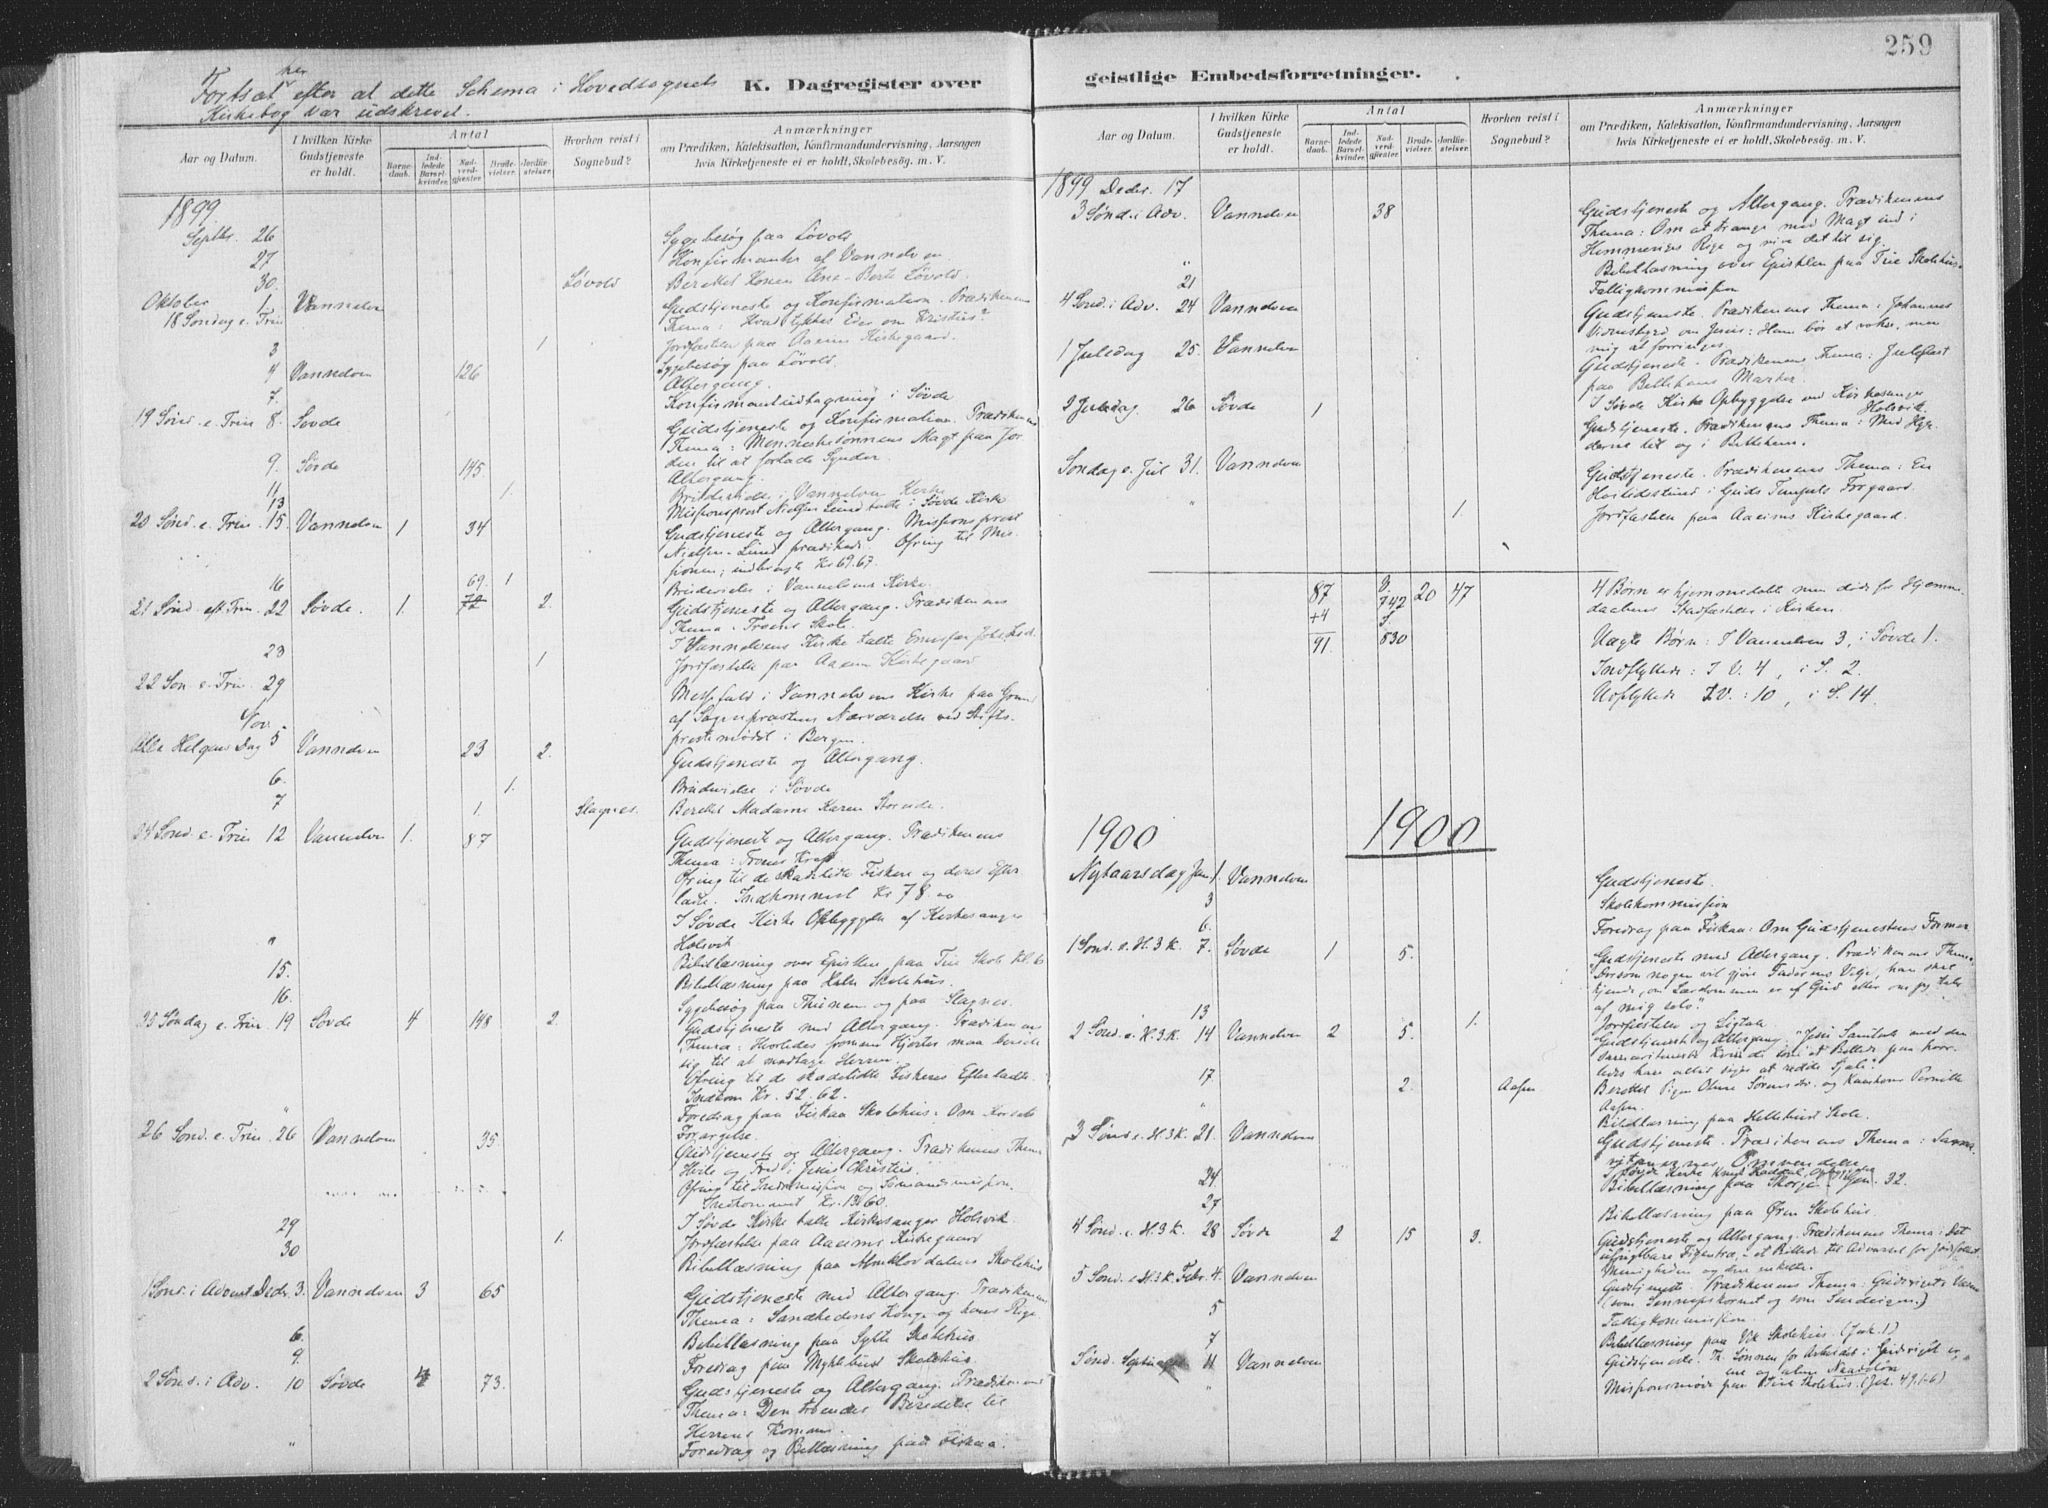 259
Fortsat her efter at dette Schema i Hovedsognets
Kirkebog var udskrevet.
K. Dagregister over geistlige Embedsforretninger.
Aar og Datum.
I hvilken Kirke Gudstjeneste er holdt.
Antal
Barnedaab.
Indledede Barselkvinder.
Nadverdgjester.
Brudevielser.
Jordfæstelser.
Hvorhen reist i Sognebud?
Anmærkninger
om Prædiken, Katekisation, Konfirmandundervisning, Aarsagen
hvis Kirketjeneste ei er holdt, Skolebesøg. m. V.
1899
Septbr. 26 Sygebesøg paa Løvold
27 Konfirmanter af Vannelven
30. Løvold Berettet Konen Ane-Berte Løvold.
Oktober 1. Vannelven Gudstjeneste og Konfirmation. Prædikenens
18 Søndag e. Trin Thema: Hvad tykkes Eder om Kristus?
3 1 Jordfæstelse paa Aaeims Kirkegaard.
4 Vannelven 126 Sygebesøg paa Løvold.
Altergang.
7. Konfirmantudtagning i Søvde
19 Sønd. e. Trin 8. Søvde Gudstjeneste og Konfirmation. Prædikenens
Thema: Menneskesønnens Magt paa Jor-
den til at forlade Synder.
9. Søvde 145. Altergang.
11 1. Brudevielse i Vannelven Kirke
13 Missionsprest Nielsen Lund talte i Søvde Kirke
20 Sønd. e. Trin. 15. Vannelven 1 34 Gudstjeneste og Altergang. Missionsprest
Nielsen-Lund prædikede. Ofring til Mis-
sionen; indbragte Kr 69.67.
16 1 Brudevielse i Vannelvens Kirke.
21 Sønd. eft. Trin. 22 Søvde. 1. 69. 72 2. Gudstjeneste og Altergang. Prædikenens
Thema: Troens Skole.
I Vannelvens Kirke talte Emissær Joh.
23 1 Jordfæstelse paa Aaeim Kirkegaard
22 Søn e. Trin. 29 Messefald i Vannelvens Kirke paa Grund
af Sogneprestens Nærværelse ved Stifts-
prestemødet i Bergen.
Nov.
Alle Helgens Dag 5 Vannelven 23 2. Gudstjeneste og Altergang.
6. 1. Brudevielse i Søvde
7 1. Slagnes. Berettet Madame Karen
24 Sønd. e. Trin 12 Vannelven 1. 87 Gudstjeneste og Altergang. Prædikenens
Thema: Troens Kraft
Ofring til de skadelidte Fiskere og deres Efter-
ladte. Indkommet Kr 78.00
I Søvde Kirke Opbyggelse af Kirkesanger
Holsvik
15. Bibellæsning over Epistlen paa Skole
16. Bibellæsning paa Skolehus.
Sygebesøg paa Thunem og paa Slagnes.
25 Søndag e. Trin. 19 Søvde 4 148 2. Gudstjeneste med Altergang. Prædikenens
Thema: Hvorledes fromme Hjerter maa berede
sig til at modtage Herren.
Ofring til de skadelidte Fiskeres Efterladte.
Indkom Kr. 52.62.
Foredrag paa Fiskaa Skolehus: Om Korsets
Forargelse.
26 Sønd. e. Trin 26 Vannelven 35 Gudstjeneste og Altergang. Prædikenens Thema
Hvile og Fred i Jesus Christus.
Ofring til Indremission og Sømandsmission.
Indkommet Kr. 13.60.
I Søvde Kirke talte Kirkesanger Holsvik.
29 1. Jordfæstelse paa Aaeims Kirkegaard
30 Bibellæsning paa Almklovdalens Skolehus
1 Sønd. i Advent Decbr. 3. Vannelven 3 65 Gudstjeneste med Altergang. Prædikenens
Thema: Sandhedens Konge og hans Rige.
6. Bibellæsning paa Sylte Skolehus.
9. Foredrag paa Myklebust Skolehus.
2 Sønd. i Adv. 10 Søvde 4 73. Gudstjeneste og Altergang. Prædikenens
Thema: Den troendes Beredelse til
Herrens Komme.
" Foredrag og Bibellæsning paa Fiskaa.
Aar og Datum.
I hvilken Kirke Gudstjeneste er holdt.
Antal
Barnedaab.
Indledede Barselkvinder.
Nadverdgjester.
Brudevielser.
Jordfæstelser.
Hvorhen reist i Sognebud?
Anmærkninger
om Prædiken, Katekisation, Konfirmandundervisning, Aarsagen
hvis Kirketjeneste ei er holdt, Skolebesøg. m. V.
1899 Decbr. 17
3 Sønd. i Adv. Vannelven 38 Gudstjeneste og Altergang. Prædikenens
Thema: Om at trænge med Magt ind i
Himmeriges Rige og rive det til sig.
" 21 Bibellæsning over Epistlen paa Skolehus.
Fattigkommission
4 Sønd. i Adv. 24 Vannelven Gudstjeneste. Prædikenens Thema: Johannes
Vidnesbyrd om Jesus: Ham bør at vokse, men
mig at forringes.
1 Juledag 25. Vannelven Gudstjeneste. Prædikenens Thema: Julefest
paa Betlehems Marker.
2 Juledag 26 Søvde 1 I Søvde Kirke Opbyggelse ved Kirkesanger
Holsvik.
Gudstjeneste. Prædikenens Thema: Med Hyr-
derne til og i Betlehem.
Søndag e. Jul 31. Vannelven Gudstjeneste. Prædikenens Thema: En
Høitidsstund i Guds Tempels Forgaard.
" 1. Jordfæstelse paa Aaeims Kirkegaard.
87 V. 742 20 47 4 Børn er hjemmedøbte men døde før Hjemme-
+4 S. daabens Stadfæstelse i Kirken.
91. 830 Uægte Børn: I Vannelven 3, i Søvde 1.
Indflyttede: I V. 4, i S. 2.
Udflyttede I V.: 10, i S. 14.
1900 1900
Nytaarsdag Jan 1. Vannelven Gudstjeneste.
3 Skolekommission
6. Foredrag paa Fiskaa: Om Gudstjenestens Former
1 Sønd. e. H.3K. 7. Søvde 1 5. Gudstjeneste med Altergang. Prædikenens Thema:
Dersom nogen vil gjøre Faderens Vilje, han skal
kjende, om Lærdommen er af Gud eller om jeg taler
af mig selv".
13 1. Jordfæstelse og Ligtale
2 Sønd. e. H.3K. 14 Vannelven 2 5. Gudstjeneste og Altergang. "Jesu Samtale med den
samaritanske Kvinde som et Billede paa hvor-
ledes han altid søger at redde Sjæle".
17. 2. Aasen Berettet Pigen Oline Sørensdr. og Kaarkone Pernille
Aasen.
" Bibellæsning paa Skole.
3 Sønd. e. H.3K. 21. Vannelven Gudstjeneste. Prædikenens Thema: Sama-
ritanernes Omvendelse
I Søvde Kirke
24 Bibellæsning paa 32.
27 Bibellæsning paa Ørin Skolehus
4 Sønd. e. H.3K. 28 Søvde 2 15 3. Gudstjeneste og Altergang. Prædikenens Thema: Det
ufrugtbare Figentræ, et Billede til Advarsel for Jødefolket
Menigheden og den enkelte.
5 Sønd. e. H.3K. Febr. 4. Vannelven Gudstjeneste Prædikenens Thema: Gudsrigets Væxt
(som Sennepskornet og som Surdeigen.)
5 Fattigkommission.
7 Bibellæsning paa Vik Skolehus. (Jak. 1)
Sønd. Septuag 11 Vannelven Gudstjeneste. Th. Lønnen for Arbeidet i Gudsriget er
ene og alene Naadeløn
" Missionsmøde paa Skolehus. (Jes. 49.1-6)